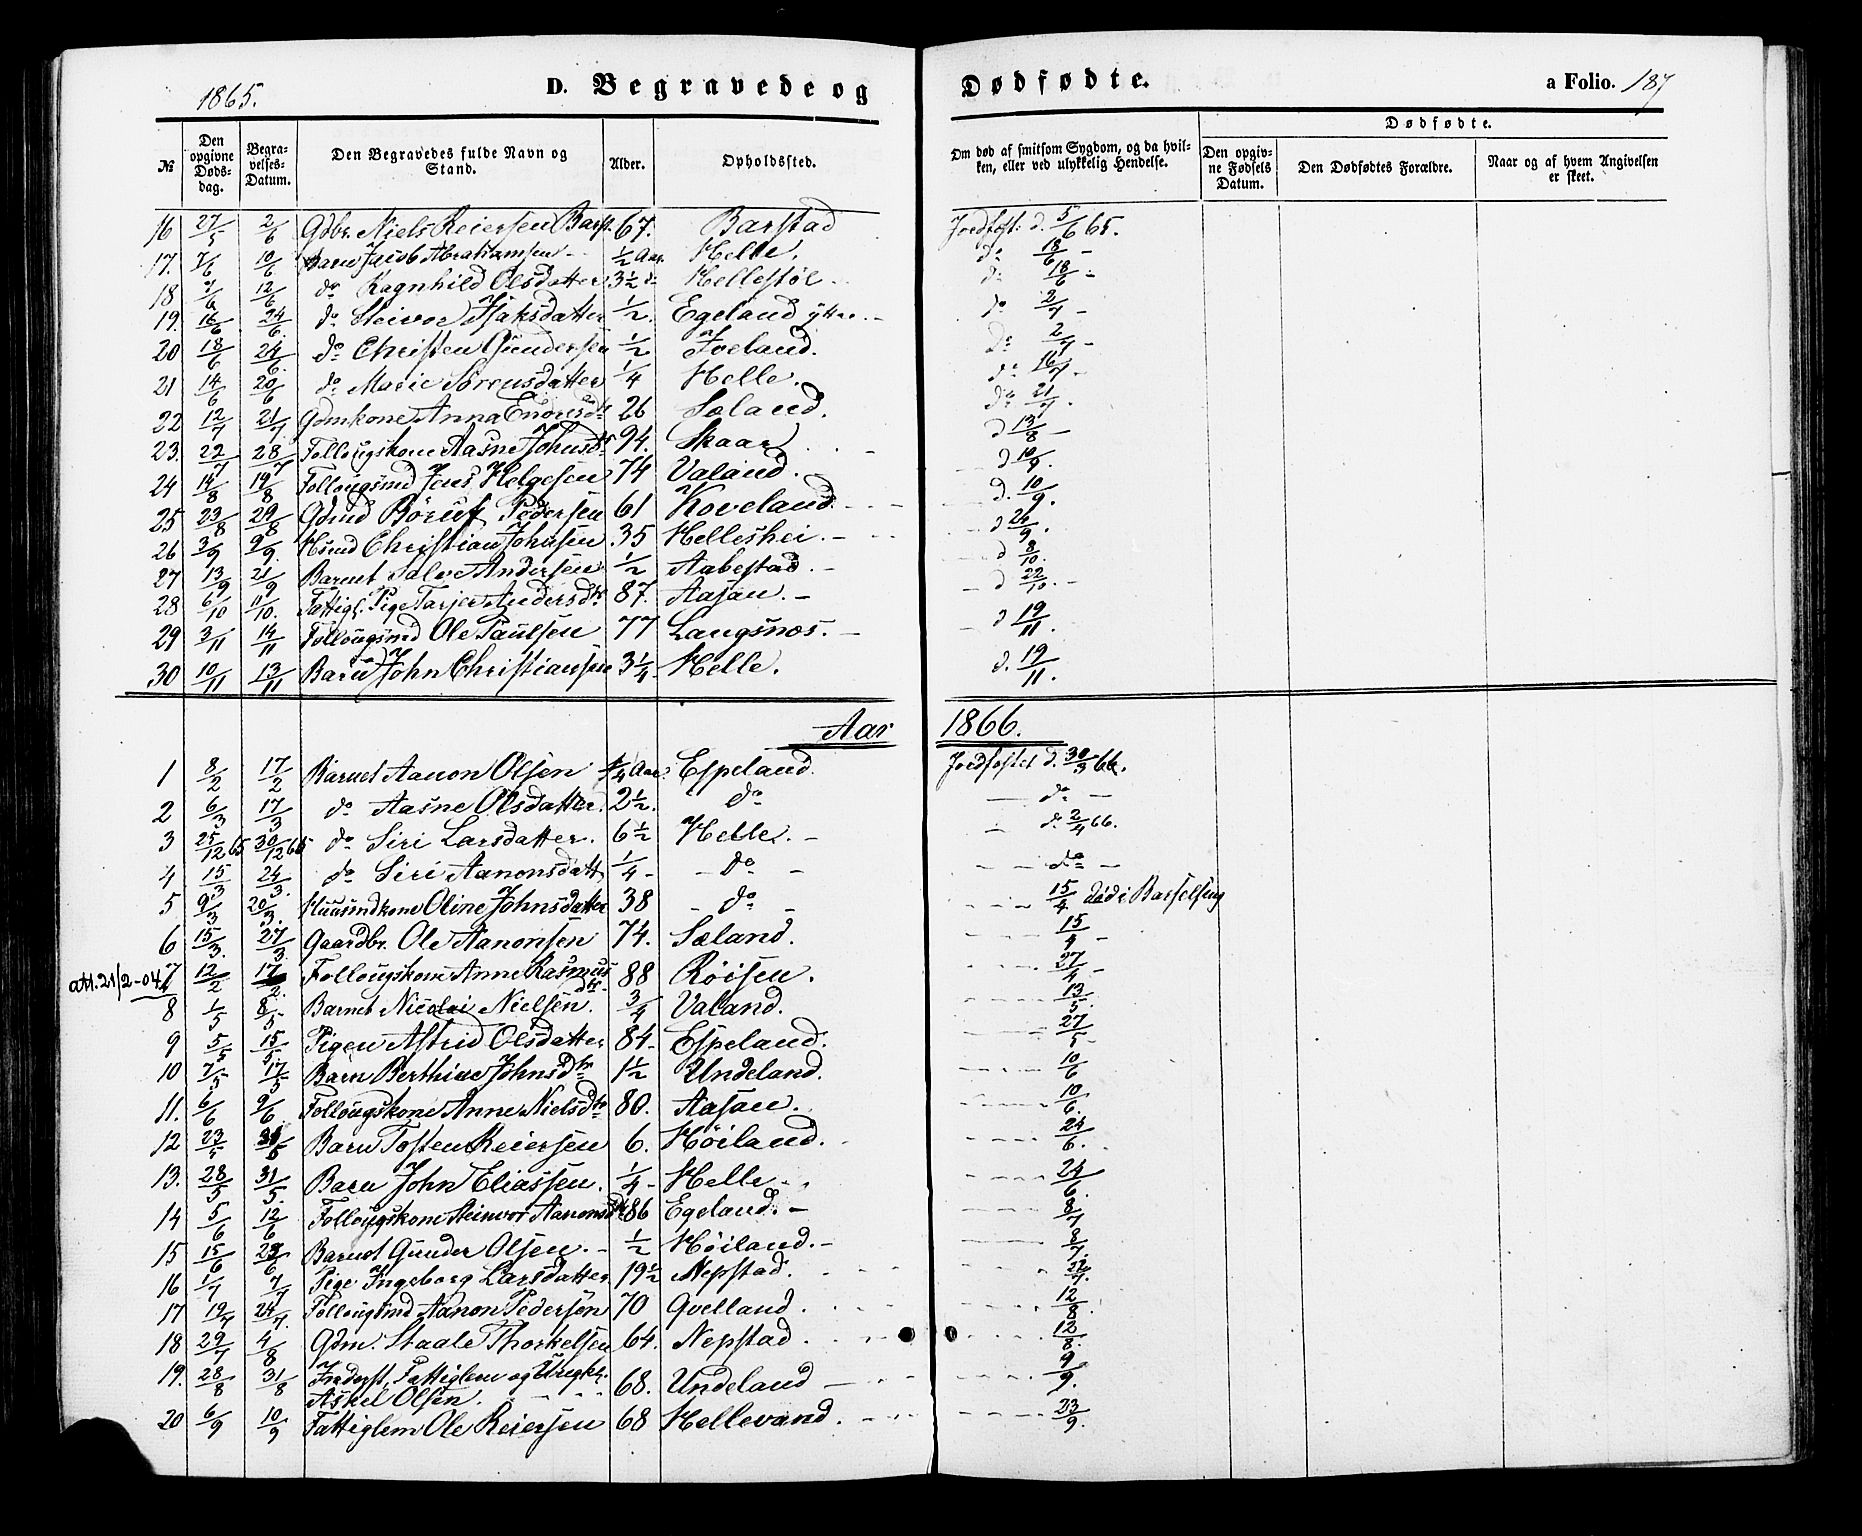 1865. D. Begravede og Dødfødte. a Folio. 187
Dødfødte.
№ Den opgivne Døds-dag. Begra-velses-Datum. Den Begravedes fulde Navn og Stand. Alder. Opholdssted. Om død af smitsom Sygdom, og da hvil-ken, eller ved ulykkelig Hendelse. Den opgiv-ne Fødsels Datum. Den Dødfødtes Forældre. Naar og af hvem Angivelsen er skeet.
16 27/5 2/6 Gdbr. Niels Reiersen Barst. 67. Barstad Jordfest. d. 5/6 65.
17. 7/6 10/6 Barn Jacob Abrahamsen 1/2 Aar Helle. do 18/6 -
18 7/6 12/6 do Ragnhild Olsdatter 3 1/2 d. Hellestøl d. 18/6 -
19. 16/6 24/6. do Steivor Isaksdatter 1/2. Egeland ytre do 2/7 -
20 18/6 24/6. do Christen Gundersen 1/2 Iveland. do 2/7 -
21 14/6 20/6 do Marie Sørensdatter 1/4 Helle. do 16/7 -
22 12/7 21/7 Gdmkone Anna Enersdtr 26 Sæland. do 21/7.
23. 22/7 28/7 Follougskone Aasne Johnsdtr 94. Skaar d 13/8 -
24 14/8 19/8 Follougsmd Jens Helgesen 74 Valand. d 10/9.
25 23/8 29/8 Gdmd Børuf Pedersen 61 Koveland. d. 10/9.
26 3/9 9/9. Husmd Christian Johnsen. 35 Helleshei. d 26/9.
27 13/9 21/9 Barnet Salve Andersen 1/2 Aabestad. d 8/10.
28 6/10 11/10. Fattigl. Pige Tarjer Andersdtr 87. Aasan. d 22/10. -
29 3/11 14/11 Follougsmd Ole Paulsen 77 Langsnes. d 19/11.
30 10/11 13/11 Barn John Christiansen 3 1/4. Helle. d. 19/11.
Aar 1866.
1 8/2 17/2 Barnet Aanon Olsen 1/4 Aar Espeland. Jordfestet d. 30/3 66.
2 6/3 17/3 do Aasne Olsdatter. 2 1/2. do do -
3 25/12 65 30/12 65 do Siri Larsdatter. 6 1/2 Helle. d. 2/4 66.
4 15/3 24/3. do Siri Aanonsdatt 1/4 - do - do -
5 9/3 20/3. Huusmdkone Oline Johnsdatter 38 - do - 15/4. død i Barselseng
6 15/3. 27/3 Gaardbr. Ole Aanonsen 74. Sæland. 15/4 -
att. 21/2-04. 7 12/2 17/2. Follougskone Anne Rasmusdtr 88 Røisen. 27/4 -
8 1/5 8/5 Barnet Nicolai Nielsen. 3/4 Valand. 13/5.
9 5/5 15/5. Pigen Astrid Olsdatter 84. Espeland. 27/5 -
10 7/5 17/5 Barn Berthine Johnsdtr 1 1/2 Undeland. 10/6
11. 6/6 9/6. Follougskone Anne Nielsdtr 80. Aasan. 10/6.
12 23/5 31/5 Barn Tosten Reiersen 6. Høiland. 24/6.
13. 28/5 31/5. Barn John Eliassen. 1/4 - Helle. 24/6.
14 5/6 12/6 Follougskone Steinvor Aanonsdtr 86 Egeland. - 8/7
15 15/6 22/6 Barnet Gunder Olsen. - 1/2 Høiland. - 8/7.
16 1/7 7/7 Pige Ingeborg Larsdatter. 19 1/2 Nepstad. 22/7.
17 19/7 24/7. Follougsmd Aanon Pedersen 70 Qvelland. 12/8.
18 29/7 4/8 Gdm. Staale Thorkelsen 64. Nepstad. 12/8.
19. 28/8 31/8 Inderst, Fattiglem og Askel Olsen. 68. Undeland 9/9.
20 6/9 10/9 Fattiglem Ole Reiersen 68 Hellevand. 23/9.